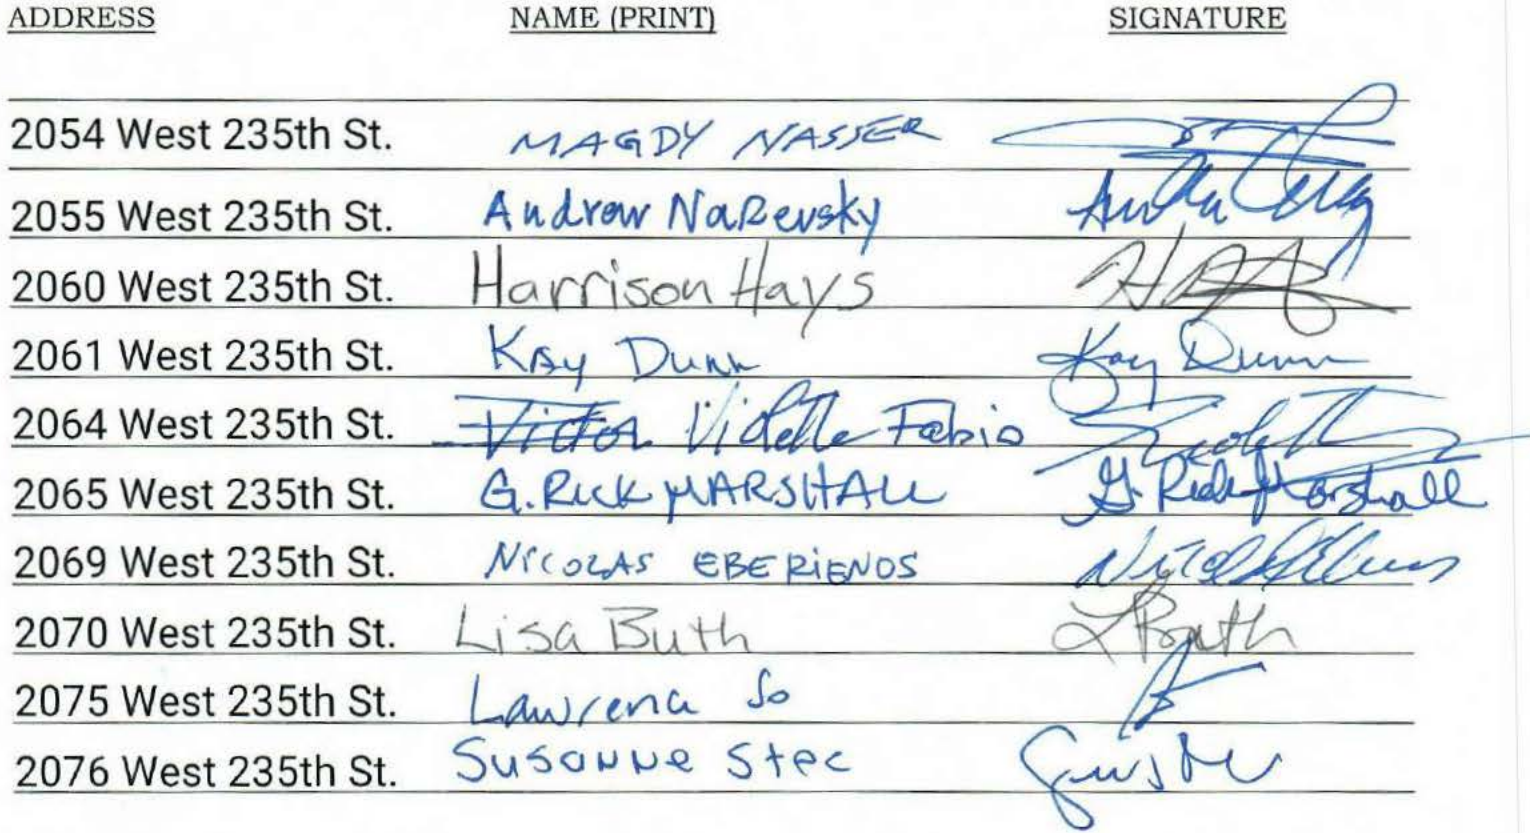 ADDRESS NAME (PRINT) SIGNATURE
2054 West 235th St. MAGDY NASSER
2055 West 235th St. Andrew Nazevsky
2060 West 235th St. Harrison Hays
2061 West 235th St. Kay Dunn Kay Dunn
2064 West 235th St. Victor Vidette Fabio
2065 West 235th St. G. RICK MARSHALL G. Rick Marshall
2069 West 235th St. NICOLAS EBERIENOS
2070 West 235th St. Lisa Buth L Buth
2075 West 235th St. So
2076 West 235th St. Susanne Stec